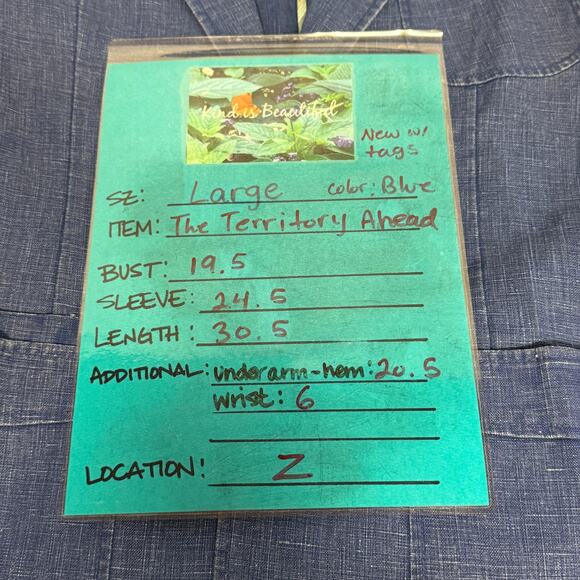 Kind is Beautiful
New w/
tags
SZ: Large color: Blue
ITEM: The Territory Ahead
BUST: 19.5
SLEEVE: 24.5
LENGTH: 30.5
ADDITIONAL: underarm-hem: 20.5
wrist: 6
LOCATION: Z